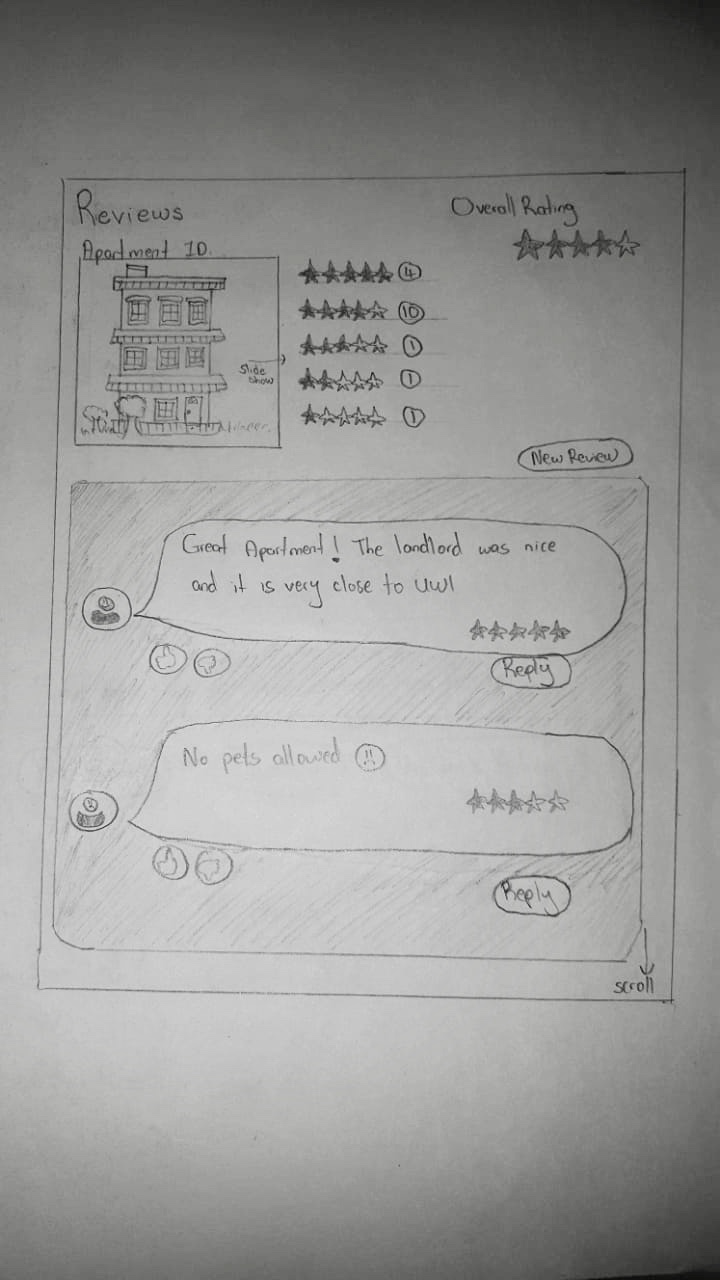 Reviews
Overall Rating
Apartment 1D.
4
10
1
1
1
Slide
show
New Review
Great Apartment! The landlord was nice
and it is very close to UWI
Reply
No pets allowed
Reply
scroll